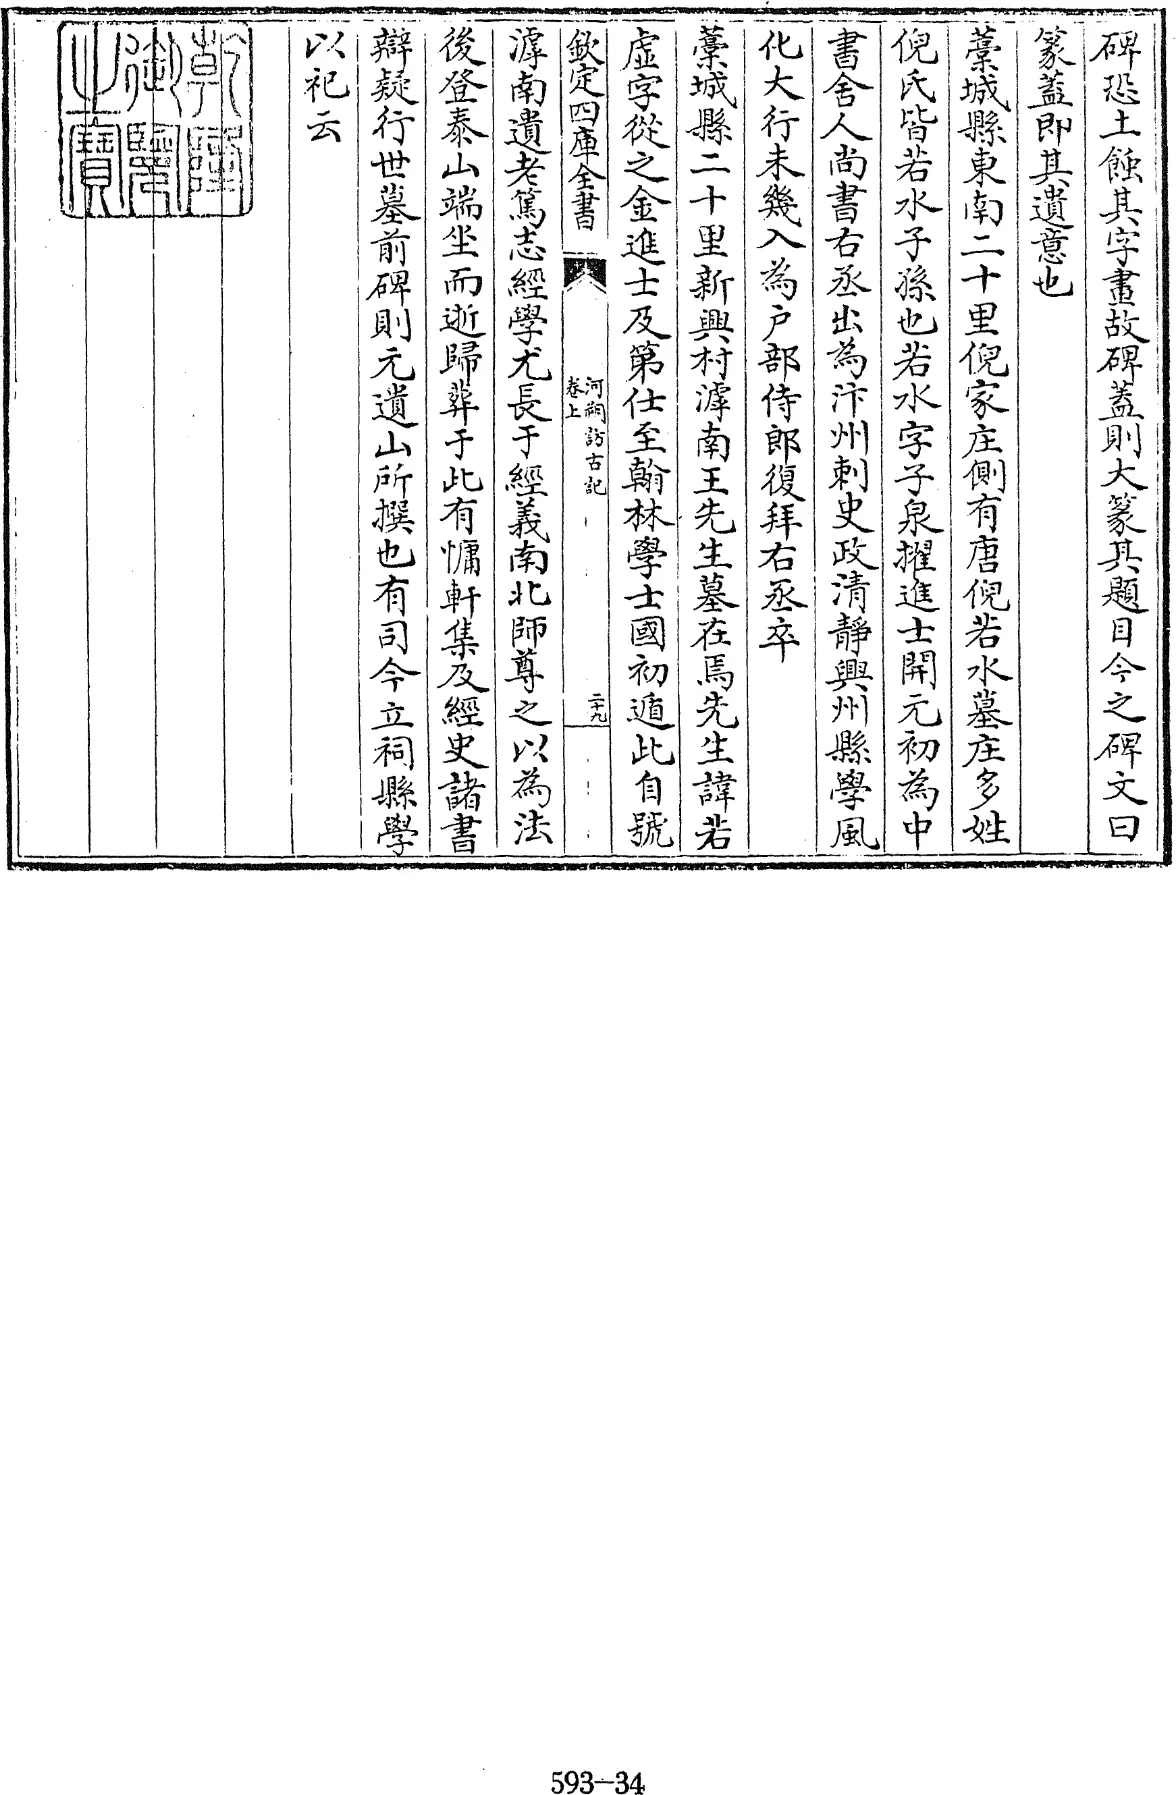 碑恐土蝕其字畫故碑蓋則大篆其題目今之碑文曰
篆蓋即其遺意也
藁城縣東南二十里倪家庄側有唐倪若水墓庄多姓
倪氏皆若水子孫也若水字子泉擢進士開元初為中
書舍人尚書右丞出為汴州刺史政清靜興州縣學風
化大行未幾入為戶部侍郎復拜右丞卒
藁城縣二十里新興村滹南王先生墓在焉先生諱若
虛字從之金進士及第仕至翰林學士國初遁此自號
欽定四庫全書
河朔訪古記
卷上
二十九
滹南遺老篤志經學尤長于經義南北師尊之以為法
後登泰山端坐而逝歸葬于此有慵軒集及經史諸書
辯疑行世墓前碑則元遺山所撰也有司今立祠縣學
以祀云
乾隆
御覽
之寶
593-34